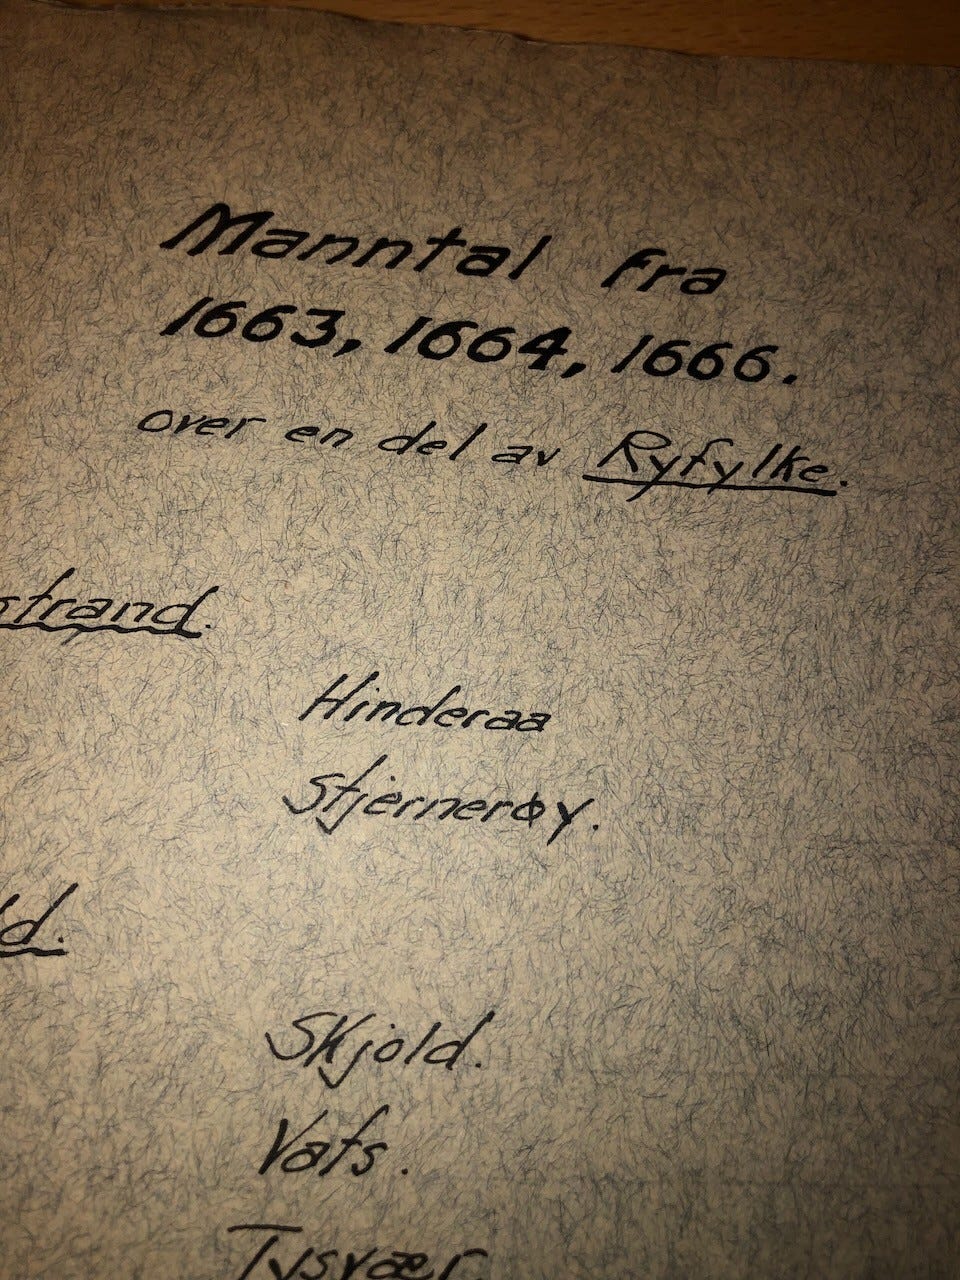 Manntal fra
1663, 1664, 1666.
over en del av Ryfylke.
strand.
Hinderaa
Stjernerøy.
ld.
Skjold.
Vats.
Tysvær.